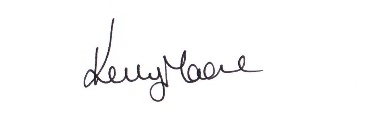 Kerry Maere